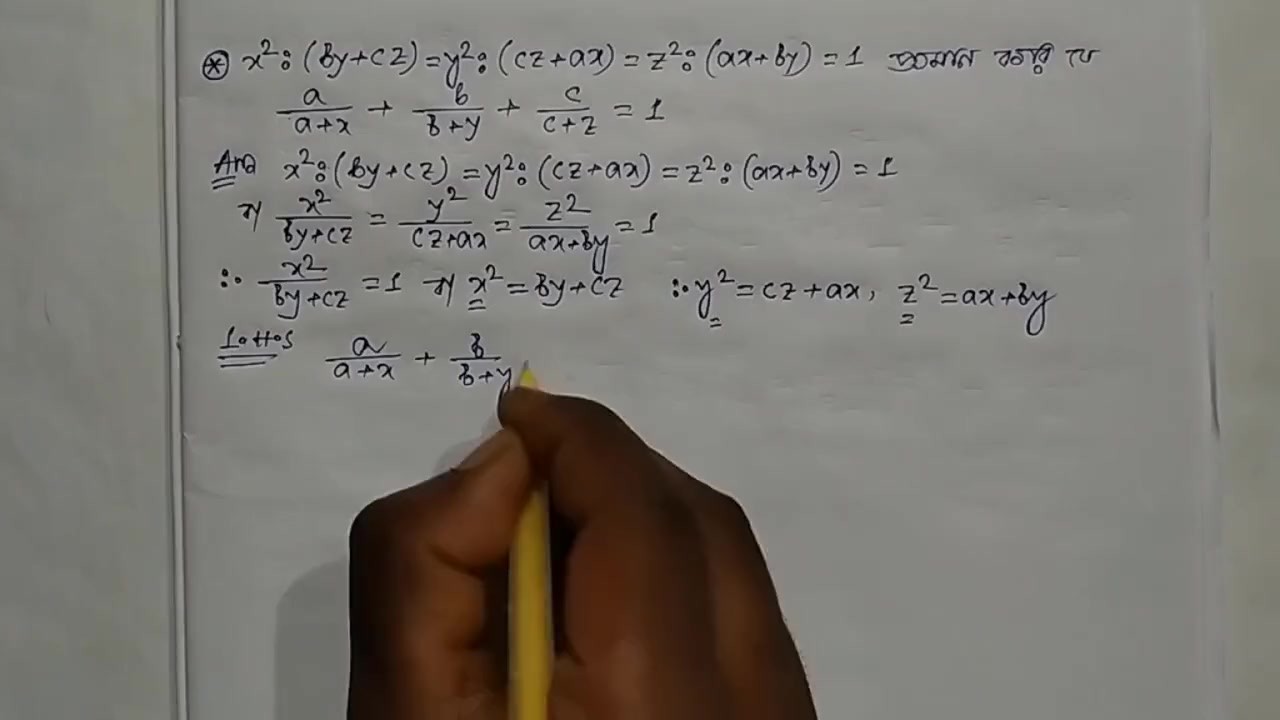 ⊛ x²:(by+cz)=y²:(cz+ax)=z²:(ax+by)=1 প্রমাণ করি যে
a/(a+x) + b/(b+y) + c/(c+z) = 1
Ans x²:(by+cz)=y²:(cz+ax)=z²:(ax+by)=1
বা x²/(by+cz) = y²/(cz+ax) = z²/(ax+by) = 1
∴ x²/(by+cz) = 1 বা x²=by+cz ∴ y²=cz+ax, z²=ax+by
L.H.S a/(a+x) + b/(b+y)